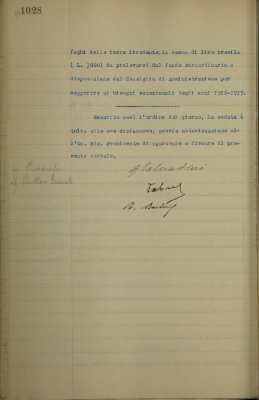 1028
fughi delle terre irredente; la somma di lire tremila
( L. 3000) da prelevarsi dal fondo straordinario a
disposizione del Consiglio di Amministrazione per
sopperire ai bisogni eccezionali degli anni 1916-1917.
Esaurito così l'ordine del giorno, la seduta è
tolta alle ore diciannove, previa autorizzazione al-
l'On. Sig. Presidente di approvare e firmare il pre-
sente verbale.
Presidente
Direttore Generale